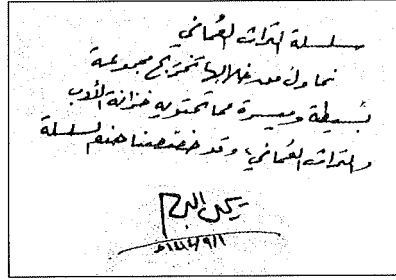 سلسلة التراث العُماني
نحاول من خلالها تخريج مجموعة
بسيطة وميسرة مما تحتويه خزانة الأدب
والتراث العُماني، وقد خصصنا هذه السلسلة